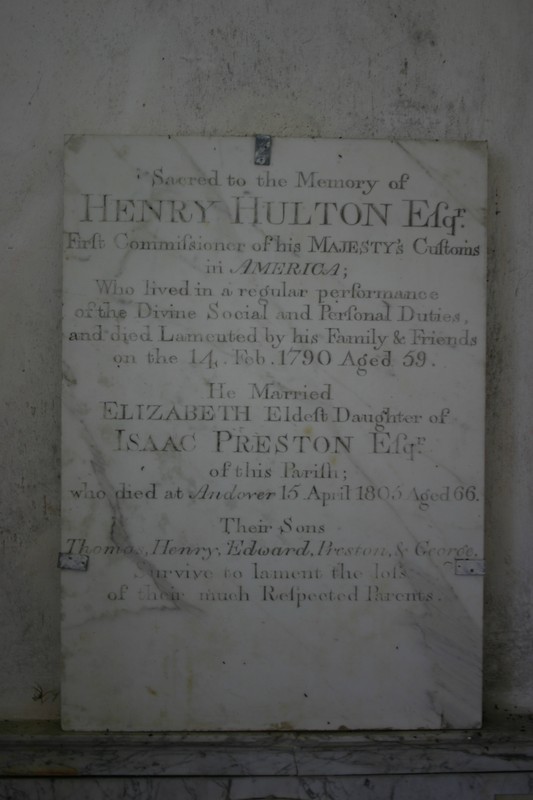 Sacred to the Memory of
HENRY HULTON Eſqr.
Firſt Commiſsioner of his MAJESTY's Cuſtoms
in AMERICA;
Who lived in a regular performance
of the Divine Social and Perſonal Duties,
and died Lamented by his Family & Friends
on the 14. Feb. 1790 Aged 59.
He Married
ELIZABETH Eldeſt Daughter of
ISAAC PRESTON Eſqr.
of this Pariſh;
who died at Andover 15 April 1805 Aged 66.
Their Sons
Thomas, Henry, Edward, Preston, & George,
Survive to lament the loſs
of their much Reſpected Parents.